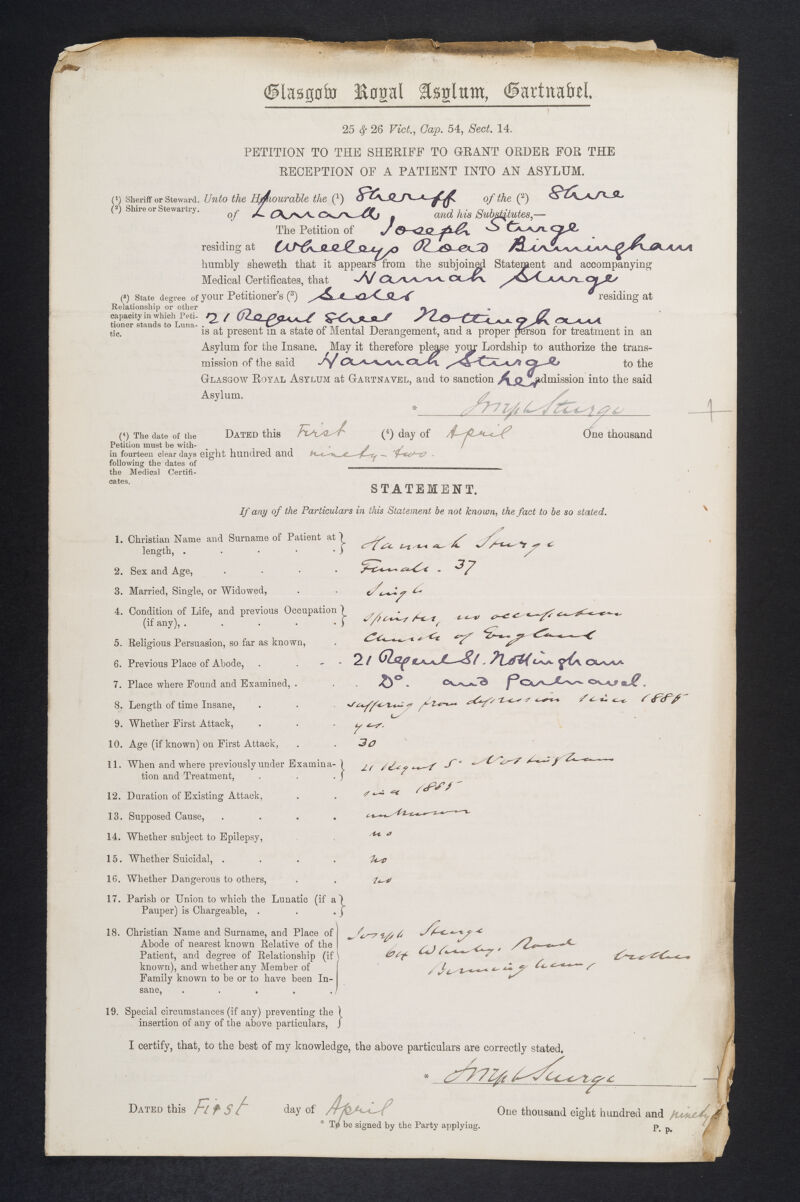 Glasgow Royal Asylum, Gartnabel.
25 & 26 Vict., Cap. 54, Sect. 14.
PETITION TO THE SHERIFF TO GRANT ORDER FOR THE
RECEPTION OF A PATIENT INTO AN ASYLUM.
(¹) Sheriff or Steward. Unto the Honourable the (¹) Sheriff of the (²) Shire
(²) Shire or Stewartry. of Lanark, and his Substitutes,—
The Petition of Joseph Sturge
residing at Wheeleys Road Birmingham
humbly sheweth that it appears from the subjoined Statement and accompanying
Medical Certificates, that Hannah Sturge
(³) State degree of Relationship or other capacity in which Petitioner stands to Lunatic.
your Petitioner's (³) Sister residing at
21 Regent Street Nottingham
is at present in a state of Mental Derangement, and a proper person for treatment in an
Asylum for the Insane. May it therefore please your Lordship to authorize the trans-
mission of the said Hannah Sturge to the
GLASGOW ROYAL ASYLUM AT GARTNAVEL, and to sanction her admission into the said
Asylum.
* Joseph Sturge
(⁴) The date of the Petition must be within fourteen clear days following the dates of the Medical Certificates.
DATED this First (⁴) day of April One thousand
eight hundred and ninety-two.
STATEMENT.
If any of the Particulars in this Statement be not known, the fact to be so stated.
1. Christian Name and Surname of Patient at length, . Hannah Sturge
2. Sex and Age, Female - 37
3. Married, Single, or Widowed, Single
4. Condition of Life, and previous Occupation (if any), . Spinster, no occupation
5. Religious Persuasion, so far as known, Church of England
6. Previous Place of Abode, 21 Regent St. Nottingham
7. Place where Found and Examined, . Do. and Gartnavel.
8. Length of time Insane, suffering from depression since 1885
9. Whether First Attack, yes.
10. Age (if known) on First Attack, 30
11. When and where previously under Examination and Treatment, 21 Regent St Nottingham
12. Duration of Existing Attack, since 1885
13. Supposed Cause, unknown
14. Whether subject to Epilepsy, no
15. Whether Suicidal, . no
16. Whether Dangerous to others, no
17. Parish or Union to which the Lunatic (if a Pauper) is Chargeable, .
18. Christian Name and Surname, and Place of Abode of nearest known Relative of the Patient, and degree of Relationship (if known), and whether any Member of Family known to be or to have been Insane, Joseph Sturge
64 Wheeleys Road
Birmingham, brother
19. Special circumstances (if any) preventing the insertion of any of the above particulars,
I certify, that, to the best of my knowledge, the above particulars are correctly stated,
* Joseph Sturge
DATED this First day of April One thousand eight hundred and ninety
* To be signed by the Party applying.
P. p.